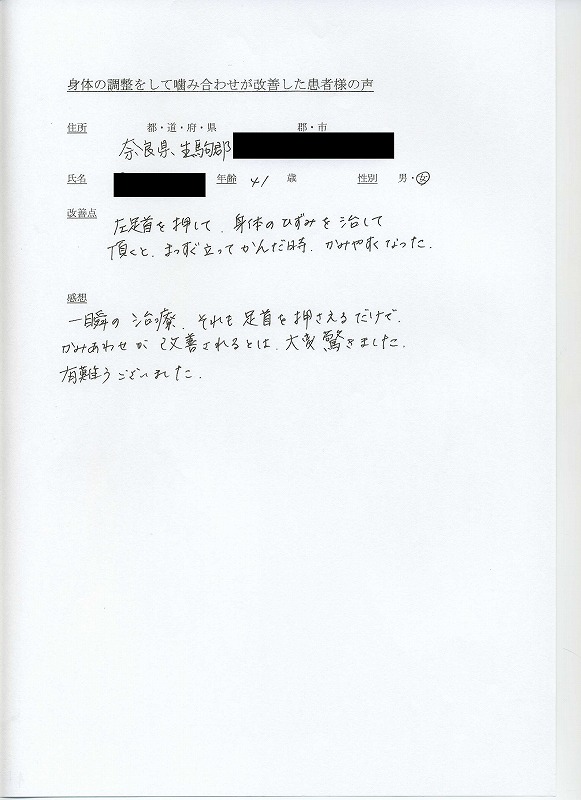 身体の調整をして噛み合わせが改善した患者様の声
住所 都・道・府・県 郡・市
奈良県、生駒郡
氏名 年齢 41 歳 性別 男・女
改善点
左足首を押して、身体のひずみを治して
頂くと、まっすぐ立ってかんだ時、かみやすくなった。
感想
一瞬の治療、それも足首を押さえるだけで、
かみあわせが改善されるとは、大変驚きました。
有難うございました。